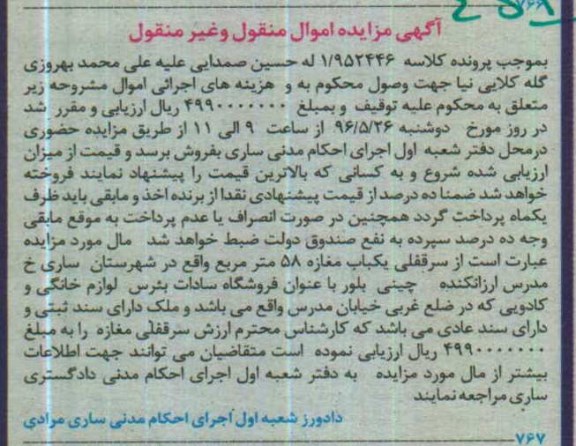 ۷۶۶
آگهی مزایده اموال منقول وغیر منقول
بموجب پرونده کلاسه ۱/۹۵۲۴۴۶ له حسین صمدایی علیه علی محمد بهروزی
گله کلایی نیا جهت وصول محکوم به و هزینه های اجرائی اموال مشروحه زیر
متعلق به محکوم علیه توقیف و بمبلغ ۴۹۹۰۰۰۰۰۰۰ ریال ارزیابی و مقرر شد
در روز مورخ دوشنبه ۹۶/۵/۲۶ از ساعت ۹ الی ۱۱ از طریق مزایده حضوری
درمحل دفتر شعبه اول اجرای احکام مدنی ساری بفروش برسد و قیمت از میزان
ارزیابی شده شروع و به کسانی که بالاترین قیمت را پیشنهاد نمایند فروخته
خواهد شد ضمنا ده درصد از قیمت پیشنهادی نقدا از برنده اخذ و مابقی باید ظرف
یکماه پرداخت گردد همچنین در صورت انصراف یا عدم پرداخت به موقع مابقی
وجه ده درصد سپرده به نفع صندوق دولت ضبط خواهد شد مال مورد مزایده
عبارت است از سرقفلی یکباب مغازه ۵۸ متر مربع واقع در شهرستان ساری خ
مدرس ارزانکنده چینی بلور با عنوان فروشگاه سادات بئرس لوازم خانگی و
کادویی که در ضلع غربی خیابان مدرس واقع می باشد و ملک دارای سند ثبتی و
دارای سند عادی می باشد که کارشناس محترم ارزش سرقفلی مغازه را به مبلغ
۴۹۹۰۰۰۰۰۰۰ ریال ارزیابی نموده است متقاضیان می توانند جهت اطلاعات
بیشتر از مال مورد مزایده به دفتر شعبه اول اجرای احکام مدنی دادگستری
ساری مراجعه نمایند
دادورز شعبه اول اجرای احکام مدنی ساری مرادی
۷۶۷